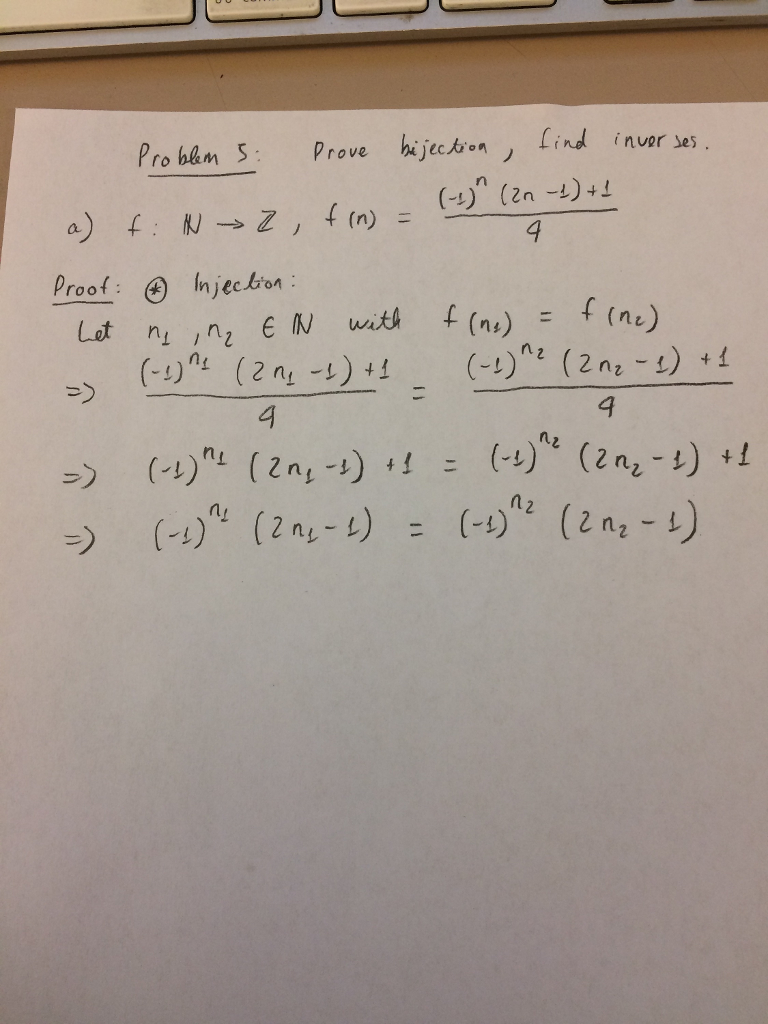 Problem 5: Prove bijection, find inverses.
a) f: ℕ → ℤ, f(n) = ((-1)^n (2n - 1) + 1) / 4
Proof: ⊛ Injection:
Let n₁, n₂ ∈ ℕ with f(n₁) = f(n₂)
=> ((-1)^n₁ (2n₁ - 1) + 1) / 4 = ((-1)^n₂ (2n₂ - 1) + 1) / 4
=> (-1)^n₁ (2n₁ - 1) + 1 = (-1)^n₂ (2n₂ - 1) + 1
=> (-1)^n₁ (2n₁ - 1) = (-1)^n₂ (2n₂ - 1)